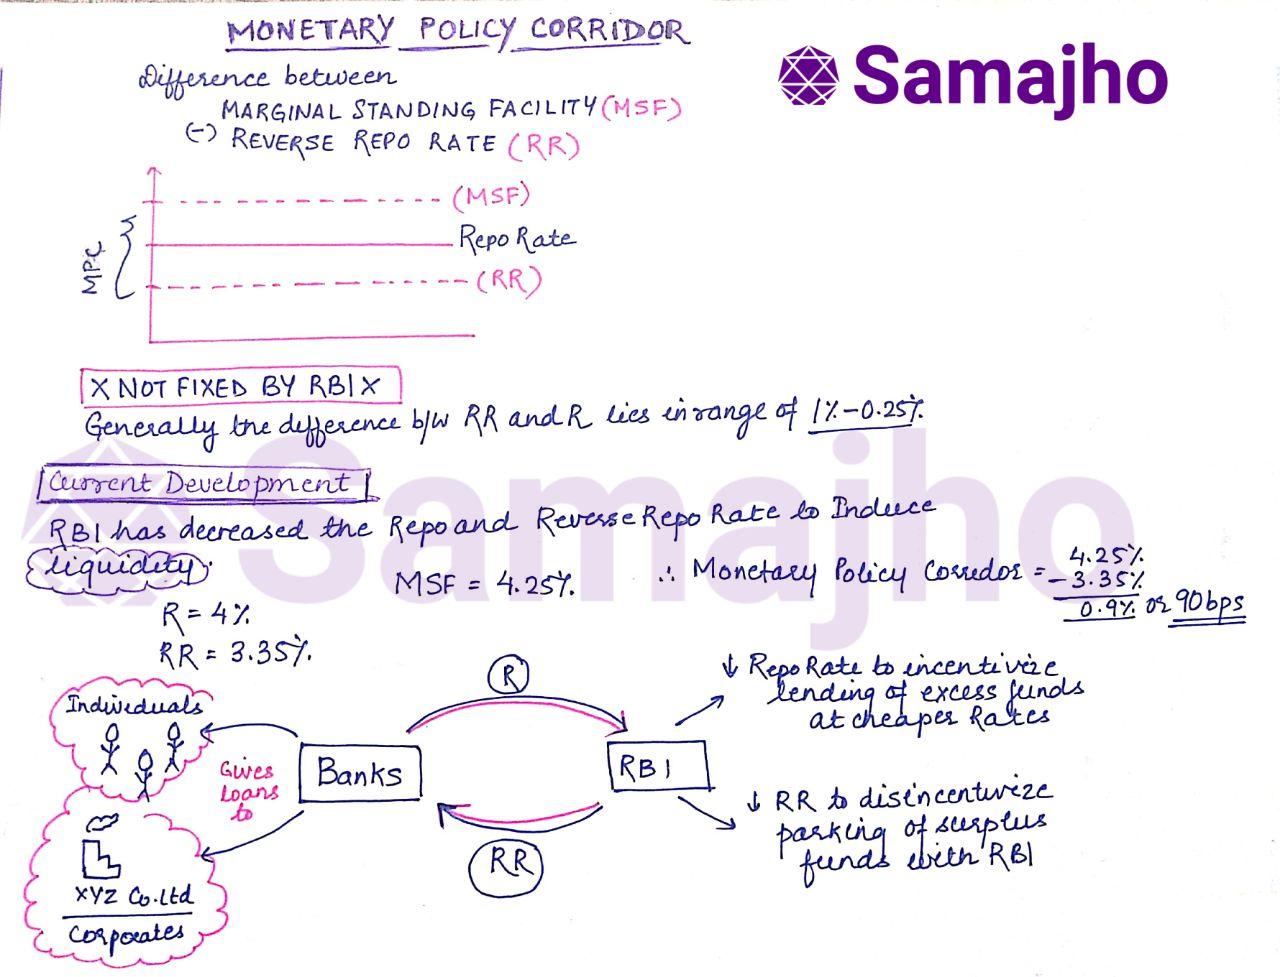 MONETARY POLICY CORRIDOR
Samajho
Difference between
MARGINAL STANDING FACILITY (MSF)
(-) REVERSE REPO RATE (RR)
(MSF)
Repo Rate
(RR)
MPC
X NOT FIXED BY RBI X
Generally the difference b/w RR and R lies in range of 1%-0.25%.
Current Development
RBI has decreased the Repo and Reverse Repo Rate to Induce
liquidity.
MSF = 4.25%.
∴ Monetary Policy Corredor = 4.25%
- 3.35%
0.9% or 90bps
R = 4%
RR = 3.35%.
Individuals
Gives
Loans
to
Banks
R
RBI
RR
↓ Repo Rate to incentivize
lending of excess funds
at cheaper Rates
↓ RR to disincentivize
parking of surplus
funds with RBI
XYZ Co.Ltd
Corporates
Samajho